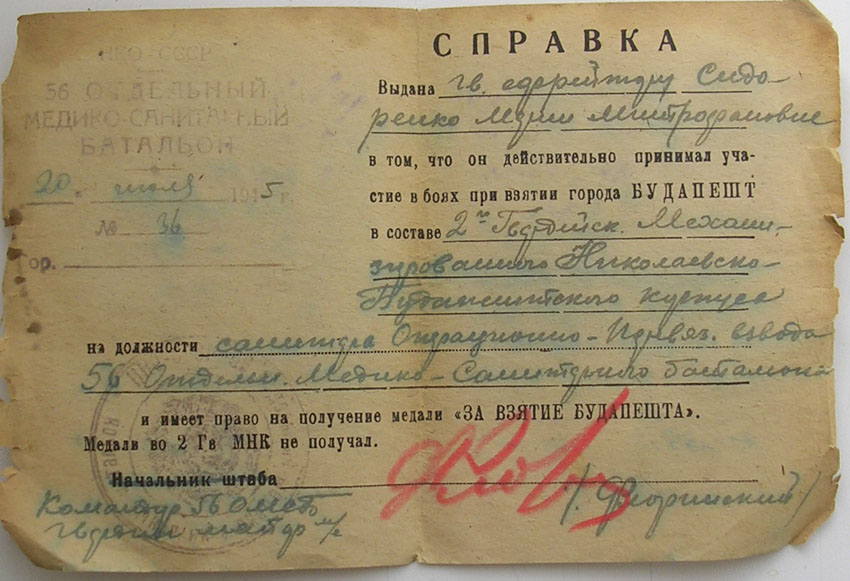 НКО-СССР
56 ОТДЕЛЬНЫЙ
МЕДИКО-САНИТАРНЫЙ
БАТАЛЬОН
20 июля 1945 г.
№ 36
ор.
СПРАВКА
Выдана гв. ефрейтору Сидо-
ренко Митрофановне
в том, что он действительно принимал уча-
стие в боях при взятии города БУДАПЕШТ
в составе 2го Гвардейск. Механи-
зированного Николаевско-
Будапештского корпуса
на должности санитара Операционно-Перевяз. взвода
56 Отдельн. Медико-Санитарного батальона
и имеет право на получение медали «ЗА ВЗЯТИЕ БУДАПЕШТА».
Медали во 2 Гв МНК не получал.
Начальник штаба
Командир 56 ОМСБ
гвардии майор м/с